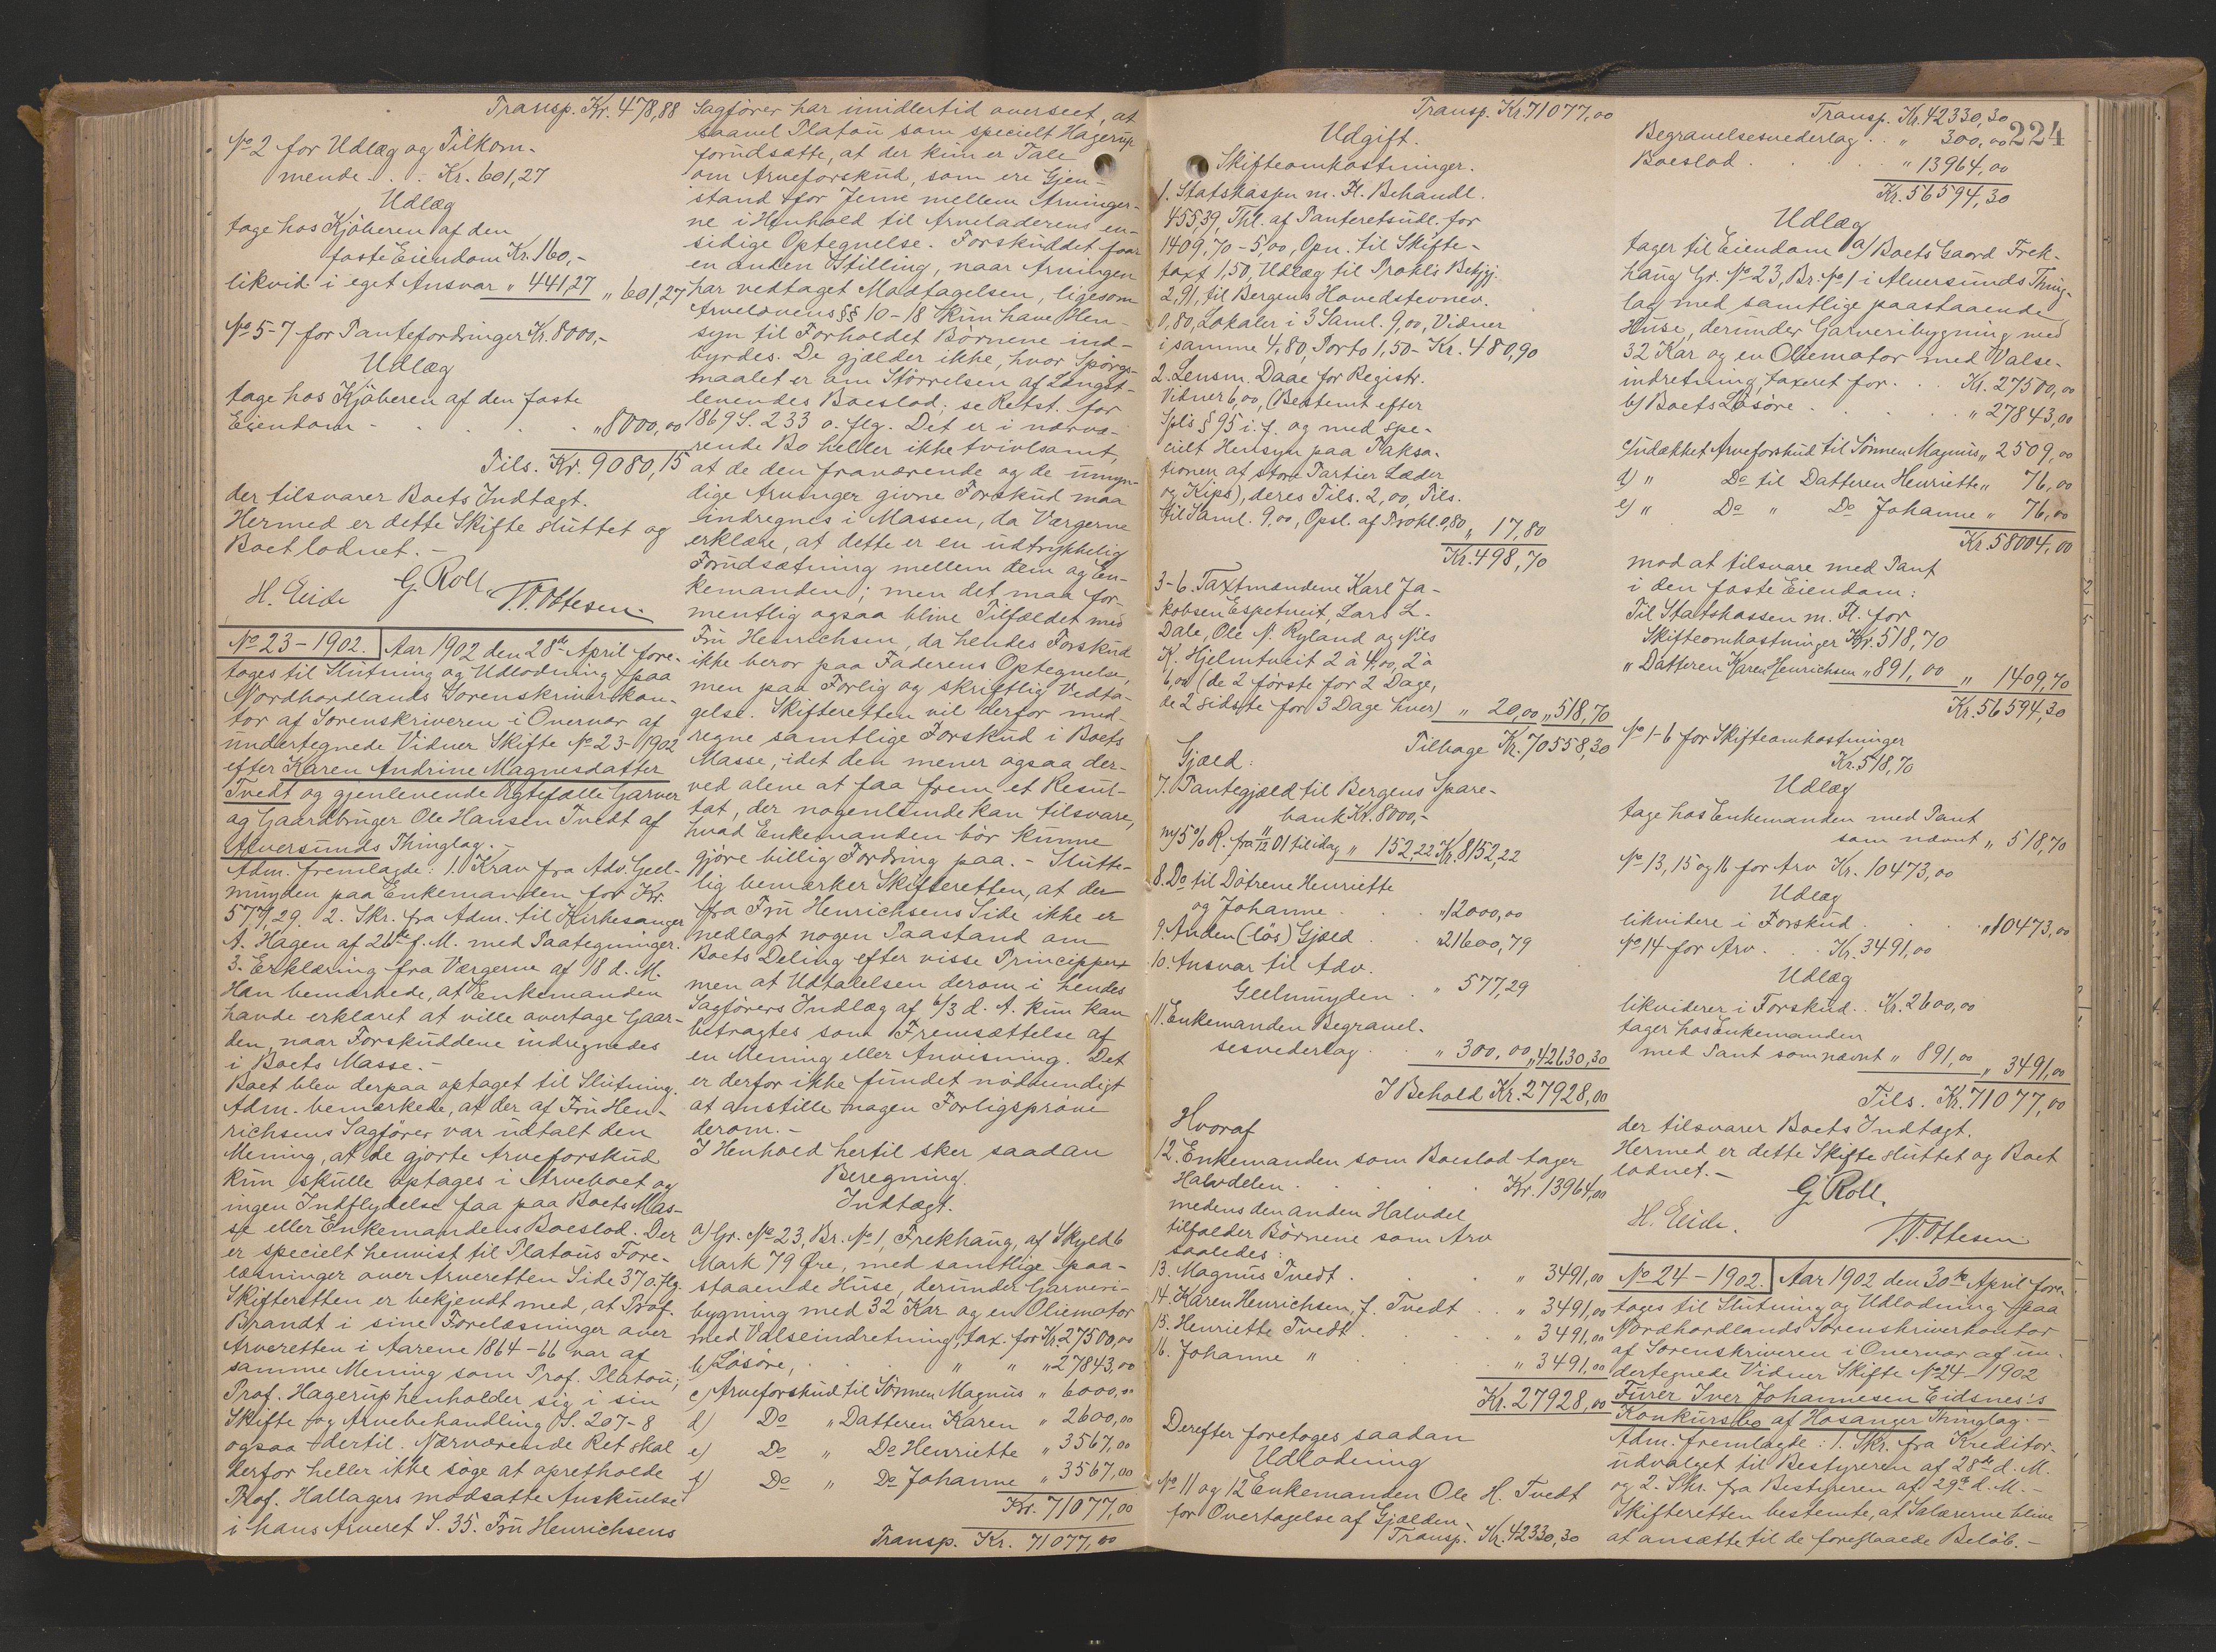 Transp. Kr. 478,88
No 2 for Udlæg og Tilkom-
mende . . . Kr. 601,27
Udlæg
tage hos Kjøberen af den
faste Eiendom Kr. 160,-
likvid. i eget Ansvar " 441,27 " 601,27
No 5-7 for Pantefordringer Kr. 8000,-
Udlæg
tage hos Kjøberen af den faste
Eiendom - . . . . " 8000,00
Tils. Kr. 9080,15
der tilsvarer Boets Indtægt.
Hermed er dette Skifte sluttet og
Boet lodnet. -
G. Roll
H. Eide T. Ottesen.
No 23 - 1902. Aar 1902 den 28de April fore-
toges til Slutning og Udlodning paa
Nordhordlands Sorenskriverkon-
tor af Sorenskriveren i Overvær af
undertegnede Vidner Skifte No 23-1902
efter Karen Andrine Magnesdatter
Tvedt og gjenlevende Ægtefælle Garver
og Gaardbruger Ole Hansen Tvedt af
Alversunds Thinglag. -
Adm. fremlagde: 1. Krav fra Adv. Geel-
muyden paa Enkemanden for Kr.
577,29. 2. Skr. fra Adm. til Kirkesanger
A. Hagen af 26de f. M. med Paategninger.
3. Erklæring fra Værgerne af 18 d. M.
Han bemærkede, at Enkemanden
havde erklæret at ville overtage Gaar-
den, naar Forskuddene indregnedes
i Boets Masse. -
Boet blev derpaa optaget til Slutning.
Adm. bemærkede, at der af Fru Hen-
richsens Sagfører var udtalt den
Mening, at de gjorte Arveforskud
kun skulle optages i Arveboet og
ingen Indflydelse faa paa Boets Mas-
se eller Enkemandens Boeslod. Der
er specielt henvist til Platous Fore-
læsninger over Arveretten Side 37 o. flg.
Skifteretten er bekjendt med, at Prof.
Brandt i sine Forelæsninger over
Arveretten i Aarene 1864-66 var af
samme Mening som Prof. Platou;
Prof. Hagerup henholder sig i sin
Skifte og Arvebehandling S. 207-8
ogsaa dertil. Nærværende Ret skal
derfor heller ikke søge at opretholde
Prof. Hallagers modsatte Anskuelse
i hans Arveret S. 35. Fru Henrichsens
Sagfører har imidlertid overseet, at
saavel Platou som specielt Hagerup
forudsætte, at der kun er Tale
om Arveforskud, som ere Gjen-
stand for Jevne mellem Arvinger-
ne i Henhold til Arveladerens en-
sidige Optegnelse. Forskuddet faar
en anden Stilling, naar Arvingen
har vedtaget Modtagelsen, ligesom
Arvelovens §§ 10-18 kun have Hen-
syn til Forholdet Børnene ind-
byrdes. De gjælder ikke, hvor Spørgs-
maalet er om Størrelsen af Længst-
levendes Boeslod; se Retst. for
1869 S. 233 o. flg. Det er i nærvæ-
rende Bo heller ikke tvivlsomt,
at de den fraværende og de umyn-
dige Arvinger givne Forskud maa
indregnes i Massen, da Værgerne
erklære, at dette er en udtrykkelig
Forudsætning mellem dem og En-
kemanden; men det maa for-
mentlig ogsaa blive Tilfældet med
Fru Henrichsen, da hendes Forskud
ikke beror paa Faderens Optegnelse,
men paa Forlig og skriftlig Vedta-
gelse. Skifteretten vil derfor med-
regne samtlige Forskud i Boets
Masse, idet den mener ogsaa der-
ved alene at faa frem et Resul-
tat, der nogenlunde kan tilsvare,
hvad Enkemanden bør kunne
gjøre billig Fordring paa. - Slutte-
lig bemærker Skifteretten, at der
fra Fru Henrichsens Side ikke er
nedlagt nogen Paastand om
Boets Deling efter visse Principper
men at Udtalelsen derom i hendes
Sagførers Indlæg af 6/3 d. A. kun kan
betragtes som Fremsættelse af
en Mening eller Anvisning. Det
er derfor ikke fundet nødvendigt
at anstille nogen Forligsprøve
derom. -
I Henhold hertil sker saadan
Beregning.
Indtægt.
a) Gr. No 23, Br. No 1, Frekhaug, af Skyld 6
Mark 79 Øre, med samtlige paa-
staaende Huse, derunder Garveri-
bygning med 32 Kar og en Oliemotor
med Valseindretning, tax. for Kr. 27500,00
b) Løsøre, . . " " " 27843,00
c) Arveforskud til Sønnen Magnus " 6000,00
d) Do " Datteren Karen " 2600,00
e) Do " Do Henriette " 3567,00
f) Do " Do Johanne " 3567,00
Kr. 71077,00
Transp. Kr. 71077,00
Transp. Kr. 71077,00
Udgift.
Skifteomkostninger.
1. Statskassen m. Fl. Behandl.
455,39, Thl. af Panteretsudl. for
1409,70 - 5,00, Opn. til Skifte-
taxt 1,50, Udlæg til Prokls Bekjgj.
2,91, til Bergens Hovedstevnev.
0,80, Lokaler i 3 Saml. 9,00, Vidner
i samme 4,80, Porto 1,50 - Kr. 480,90
2. Lensm. Daae for Registr.
Vidner 6,00, (Bestemt efter
Spls § 95 i. f. og med spe-
cielt Hensyn paa Taksa-
tionen af store Partier Læder
og Kips), deres Tils. 2,00, Tils.
til Saml. 9,00, Opsl. af Prokl. 0,80 " 17,80
Kr. 498,70
3-6. Taxtmændene Karl Ja-
kobsen Espetveit, Lars L.
Dale, Ole N. Ryland og Nils
K. Hjelmtveit 2 à 4,00, 2 à
6,00 (de 2 første for 2 Dage,
de 2 sidste for 3 Dage hver) " 20,00 " 518,70
Tilbage Kr. 70558,30
Gjæld:
7. Pantegjæld til Bergens Spare-
bank Kr. 8000,-
m/ 5% R. fra 11/12 01 til idag " 152,22 Kr. 8152,22
8. Do til Døtrene Henriette
og Johanne . . . " 12000,00
9. Anden (løs) Gjæld . . " 21600,79
10. Ansvar til Adv.
Geelmuyden . " 577,29
11. Enkemanden Begravel-
sesvederlag . . " 300,00 " 42630,30
I Behold Kr. 27928,00
Hvoraf
12. Enkemanden som Boeslod tager
Halvdelen . . . . Kr. 13964,00
medens den anden Halvdel
tilfalder Børnene som Arv
saaledes:
13. Magnus Tvedt . . . " 3491,00
14. Karen Henrichsen, f. Tvedt . " 3491,00
15. Henriette Tvedt . . . " 3491,00
16. Johanne " . . . " 3491,00
Kr. 27928,00
Derefter foretoges saadan
Udlodning
No 11 og 12 Enkemanden Ole H. Tvedt
for Overtagelse af Gjælden
Transp. Kr. 42330,30
Transp. Kr. 42330,30
Begravelsesvederlag . . " 300,00
224
Boeslod . . . . " 13964,00
Kr. 56594,30
Udlæg
tager til Eiendom a) Boets Gaard Frek-
haug Gr. No 23, Br. No 1 i Alversunds Thing-
lag med samtlige paastaaende
Huse, derunder Garveribygning med
32 Kar og en Oliemotor med Valse-
indretning, taxeret for . . Kr. 27500,00
b) Boets Løsøre . . . . " 27843,00
c) udækket Arveforskud til Sønnen Magnus " 2509,00
d) " Do til Datteren Henriette " 76,00
e) " Do " Do Johanne " 76,00
Kr. 58004,00
mod at tilsvare med Pant
i den faste Eiendom:
Til Statskassen m. Fl. for
Skifteomkostninger Kr. 518,70
" Datteren Karen Henrichsen " 891,00 " 1409,70
Kr. 56594,30
No 1-6 for Skifteomkostninger
Kr. 518,70
Udlæg
tage hos Enkemanden med Pant
som nævnt " 518,70
No 13, 15 og 16 for Arv Kr. 10473,00
Udlæg
likvidere i Forskud . . . " 10473,00
No 14 for Arv . . Kr. 3491,00
Udlæg
likviderer i Forskud . . Kr. 2600,00
tager hos Enkemanden
med Pant som nævnt " 891,00 " 3491,00
Tils. Kr. 71077,00
der tilsvarer Boets Indtægt.
Hermed er dette Skifte sluttet og Boet
lodnet. -
G. Roll.
H. Eide.
T. Ottesen
No 24 - 1902. Aar 1902 den 30te April fore-
toges til Slutning og Udlodning paa
Nordhordlands Sorenskriverkontor
af Sorenskriveren i Overvær af un-
dertegnede Vidner Skifte No 24 - 1902
Furer Iver Johannesen Eidsnes's
Konkursbo af Hosanger Thinglag. -
Adm. fremlagde: 1. Skr. fra Kreditor-
udvalget til Bestyreren af 28de d. M.
og 2. Skr. fra Bestyreren af 29de d. M. -
Skifteretten bestemte, at Salærerne blive
at ansætte til de foreslaaede Beløb. -